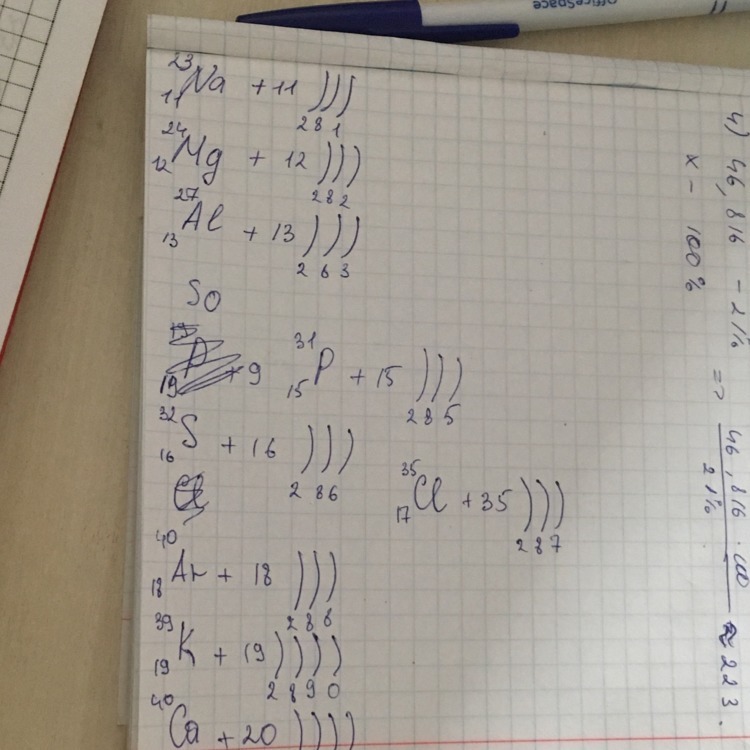 OfficeSpace
23
11 Na + 11 )))
2 8 1
24
12 Mg + 12 )))
2 8 2
27
13 Al + 13 )))
2 6 3
So
19 +9
31
15 P + 15 )))
2 8 5
32
16 S + 16 )))
2 8 6
35
17 Cl + 35 )))
2 8 7
40
18 Ar + 18 )))
2 8 8
39
19 K + 19 ))))
2 8 9 0
40
Ca + 20 ))))
4) 46,816 - 21% => 46,816 · 100 / 21% ≈ 223.
x - 100%